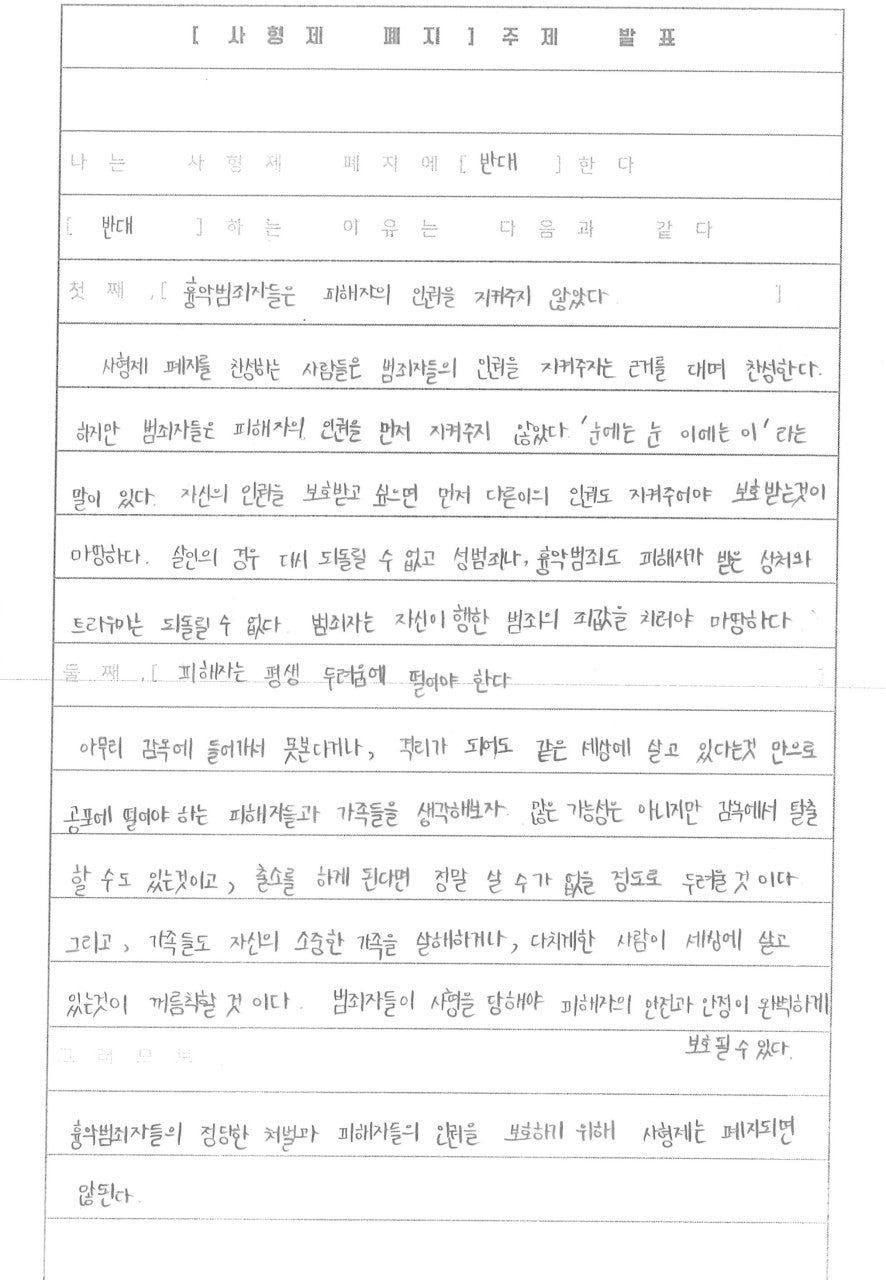 [ 사형제 폐지 ] 주제 발표
나는 사형제 폐지에 [ 반대 ] 한다
[ 반대 ] 하는 이유는 다음과 같다
첫째, [ 흉악범죄자들은 피해자의 인권을 지켜주지 않았다 ]
사형제 폐지를 찬성하는 사람들은 범죄자들의 인권을 지켜주자는 근거를 대며 찬성한다.
하지만 범죄자들은 피해자의 인권을 먼저 지켜주지 않았다. '눈에는 눈 이에는 이' 라는
말이 있다. 자신의 인권을 보호받고 싶으면 먼저 다른이의 인권도 지켜주어야 보호받는것이
마땅하다. 살인의 경우 다시 되돌릴 수 없고 성범죄나, 흉악범죄도 피해자가 받은 상처와
트라우마는 되돌릴 수 없다. 범죄자는 자신이 행한 범죄의 죄값을 치러야 마땅하다
둘째, [ 피해자는 평생 두려움에 떨어야 한다 ]
아무리 감옥에 들어가서 못본다거나, 격리가 되어도 같은 세상에 살고 있다는것 만으로
공포에 떨어야 하는 피해자들과 가족들을 생각해보자. 많은 가능성은 아니지만 감옥에서 탈출
할 수도 있는것이고, 출소를 하게 된다면 정말 살 수가 없을 정도로 두려울 것 이다
그리고, 가족들도 자신의 소중한 가족을 살해하거나, 다치게한 사람이 세상에 살고
있는것이 꺼름칙할 것 이다. 범죄자들이 사형을 당해야 피해자의 안전과 안정이 완벽하게
보호될 수 있다.
그러므로
흉악범죄자들의 정당한 처벌과 피해자들의 인권을 보호하기 위해 사형제는 폐지되면
않된다.